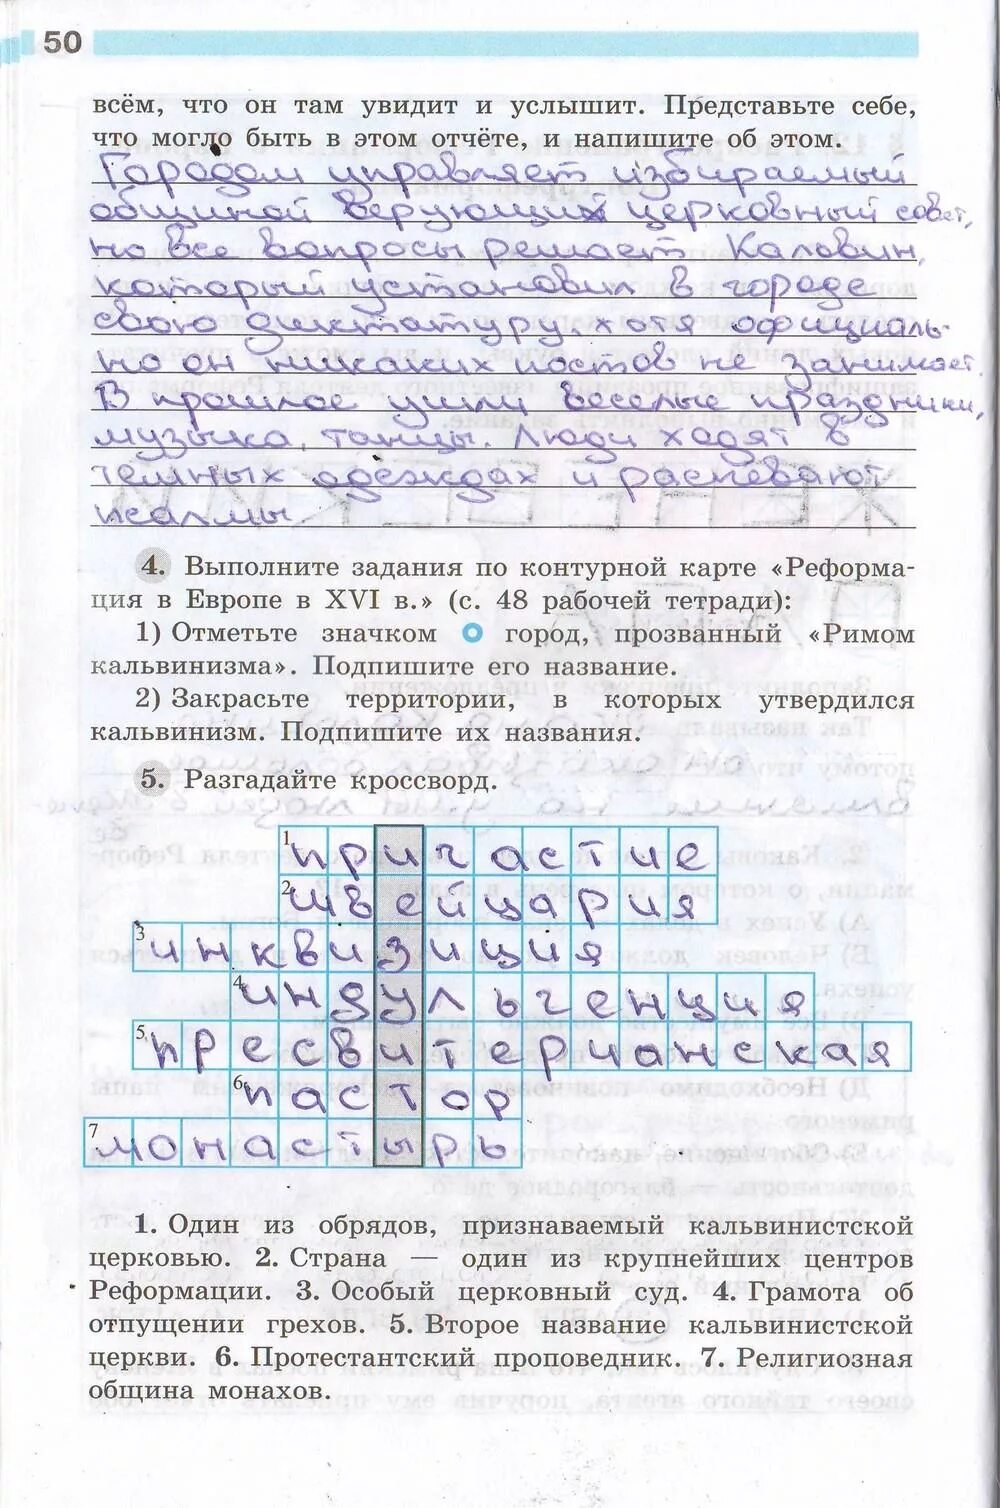 50
всём, что он там увидит и услышит. Представьте себе,
что могло быть в этом отчёте, и напишите об этом.
Городом управляет избираемый
общиной верующих церковный совет,
но все вопросы решает Кальвин,
который установил в городе
свою диктатуру, хотя официаль-
но он никаких постов не занимает.
В прошлое ушли веселые праздники,
музыка, танцы. Люди ходят в
темных одеждах и распевают
псалмы
4. Выполните задания по контурной карте «Реформа-
ция в Европе в XVI в.» (с. 48 рабочей тетради):
1) Отметьте значком город, прозванный «Римом
кальвинизма». Подпишите его название.
2) Закрасьте территории, в которых утвердился
кальвинизм. Подпишите их названия.
5. Разгадайте кроссворд.
1 причастие
2 швейцария
3 инквизиция
4 индульгенция
5 пресвитерианская
6 пастор
7 монастырь
1. Один из обрядов, признаваемый кальвинистской
церковью. 2. Страна — один из крупнейших центров
Реформации. 3. Особый церковный суд. 4. Грамота об
отпущении грехов. 5. Второе название кальвинистской
церкви. 6. Протестантский проповедник. 7. Религиозная
община монахов.